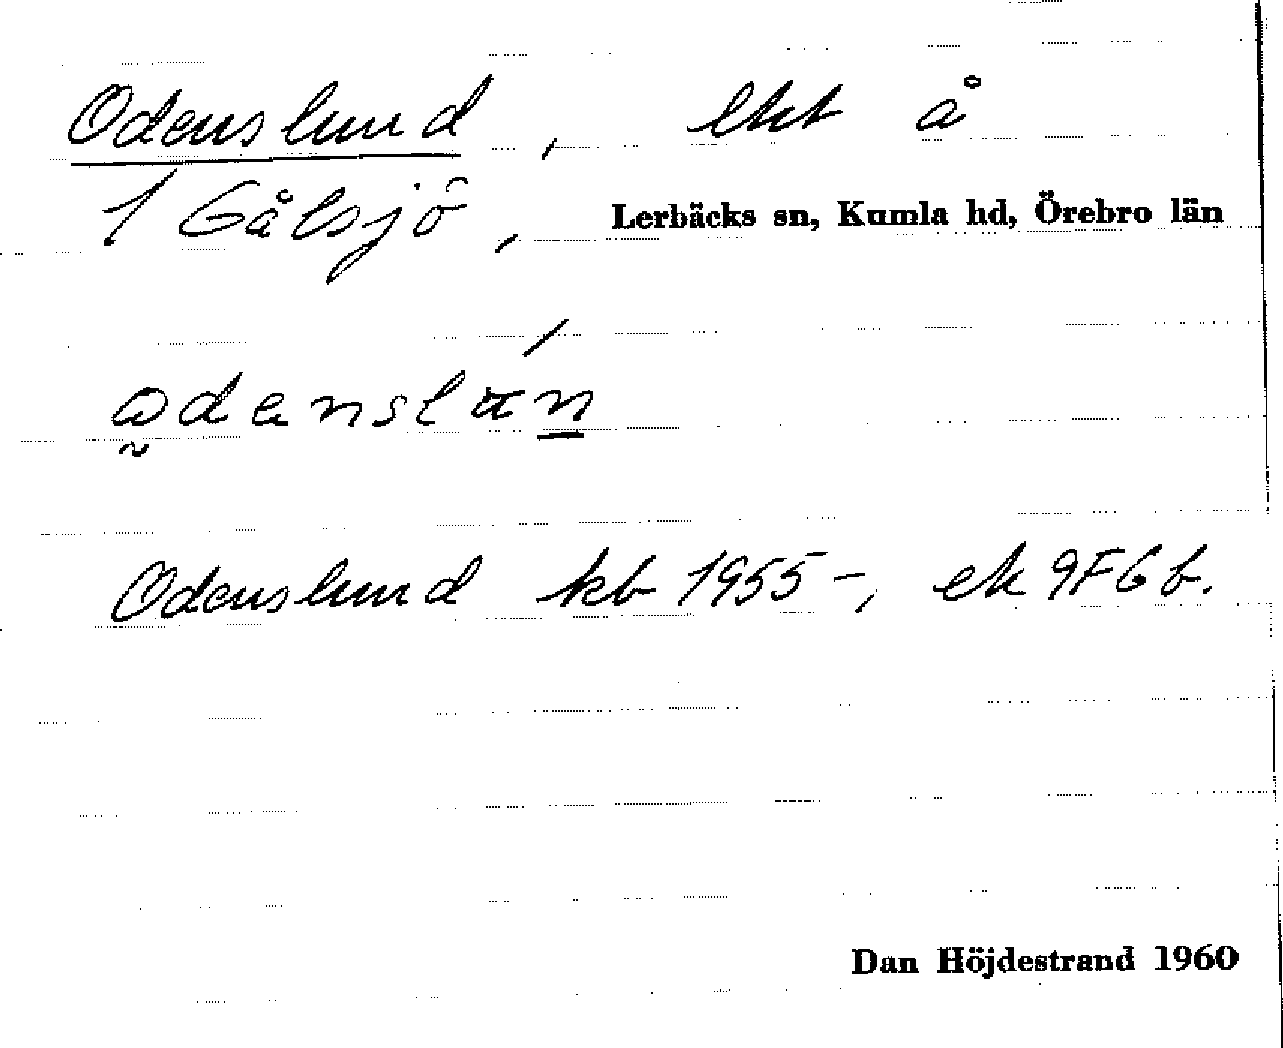 Odenslund, lht å
1 Gålsjö, Lerbäcks sn, Kumla hd, Örebro län
Odenslund kb 1955-, ek 9F6b.
Dan Höjdestrand 1960